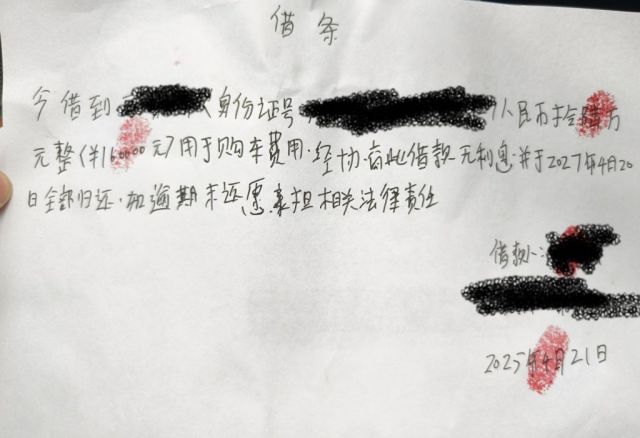 借条
今借到 身份证号 人民币拾陆万
元整(¥160000元)用于购车费用.经协商此借款无利息.并于2027年4月20
日全部归还.如逾期未还愿承担相关法律责任
借款人:
2025年4月21日